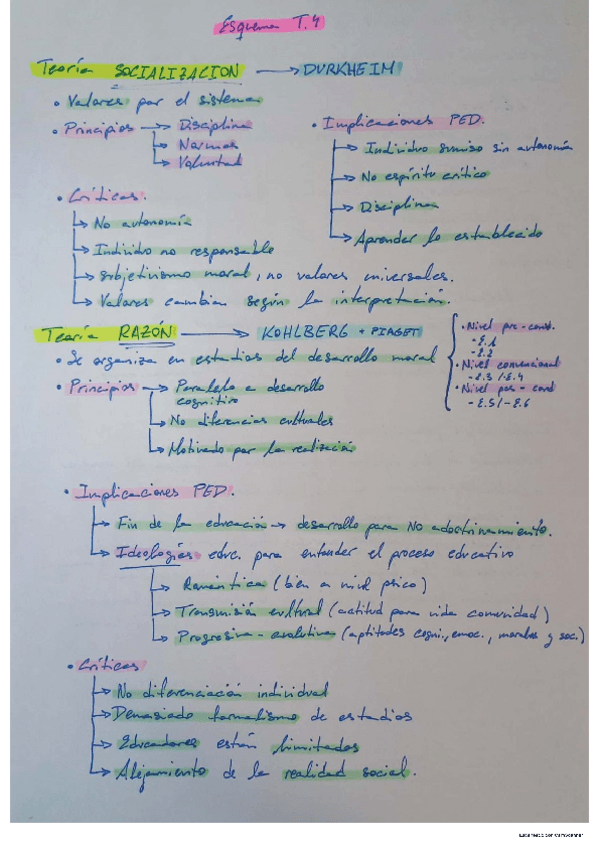 Esquema T.4
Teoría SOCIALIZACION → DURKHEIM
• Valores por el sistema
• Principios → Disciplina
→ Normas
→ Voluntad
• Implicaciones PED.
→ Individuo sumiso sin autonomía
→ No espíritu crítico
→ Disciplina
→ Aprender lo establecido
• Críticas.
→ No autonomía
→ Individuo no responsable
→ subjetivismo moral, no valores universales.
→ Valores cambian según la interpretación.
Teoría RAZÓN → KOHLBERG + PIAGET
• Se organiza en estadios del desarrollo moral
• Nivel pre-conv.
- E.1
- E.2
• Nivel convencional
- E.3 / E.4
• Nivel pos-conv
- E.5 / - E.6
• Principios → Paralelo a desarrollo
cognitivo
→ No diferencias culturales
→ Motivado por la realización
• Implicaciones PED.
→ Fin de la educación → desarrollo para No adoctrinamiento.
→ Ideologías educ. para entender el proceso educativo
→ Romántica (bien a nivel psico)
→ Transmisión cultural (actitud para vida comunidad)
→ Progresiva - evolutiva (aptitudes cogni., emoc., morales y soc.)
• Críticas
→ No diferenciación individual
→ Demasiado formalismo de estadios
→ Educadores están limitados
→ Alejamiento de la realidad social.